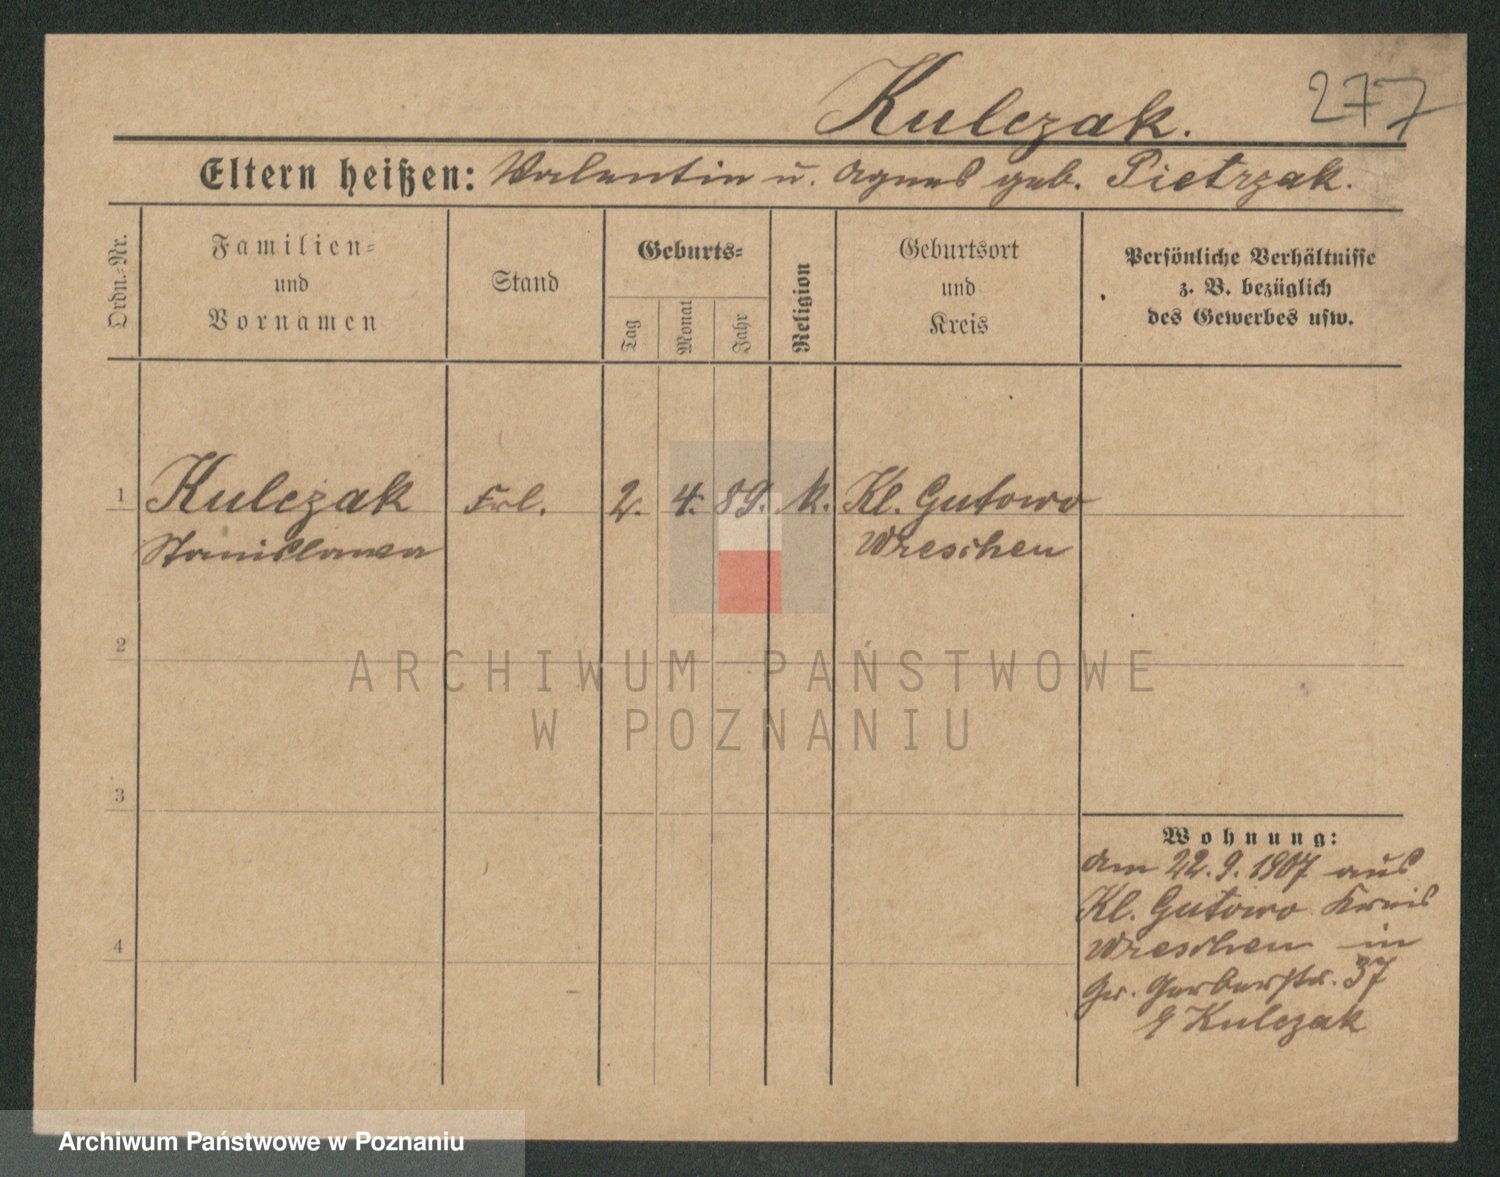 Kulczak.
277
Eltern heißen: Valentin u. Agnes geb. Pietrzak.
Ordn.-Nr.
Familien-
und
Vornamen
Stand
Geburts-
Tag
Monat
Jahr
Religion
Geburtsort
und
Kreis
Persönliche Verhältnisse
z. B. bezüglich
des Gewerbes usw.
1 Kulczak Frl. 2. 4. 89. k. Kl. Gutowo
Stanislawa Wreschen
2
ARCHIWUM PAŃSTWOWE
W POZNANIU
3
Wohnung:
am 22.9.1907 aus
Kl. Gutowo Kreis
4
Wreschen in
Gr. Gerberstr. 37
Kulczak
Archiwum Państwowe w Poznaniu